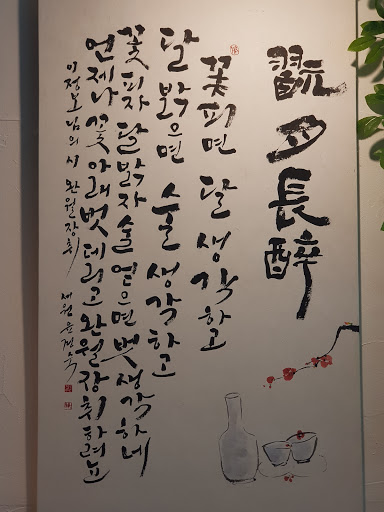 翫月長醉
꽃 피면 달 생각하고
달 밝으면 술 생각하고
꽃 피자 달 밝자 술 얻으면 벗 생각하네
언제나 꽃 아래 벗 데리고 완월장취하려뇨
이정보님의 시 완월장취